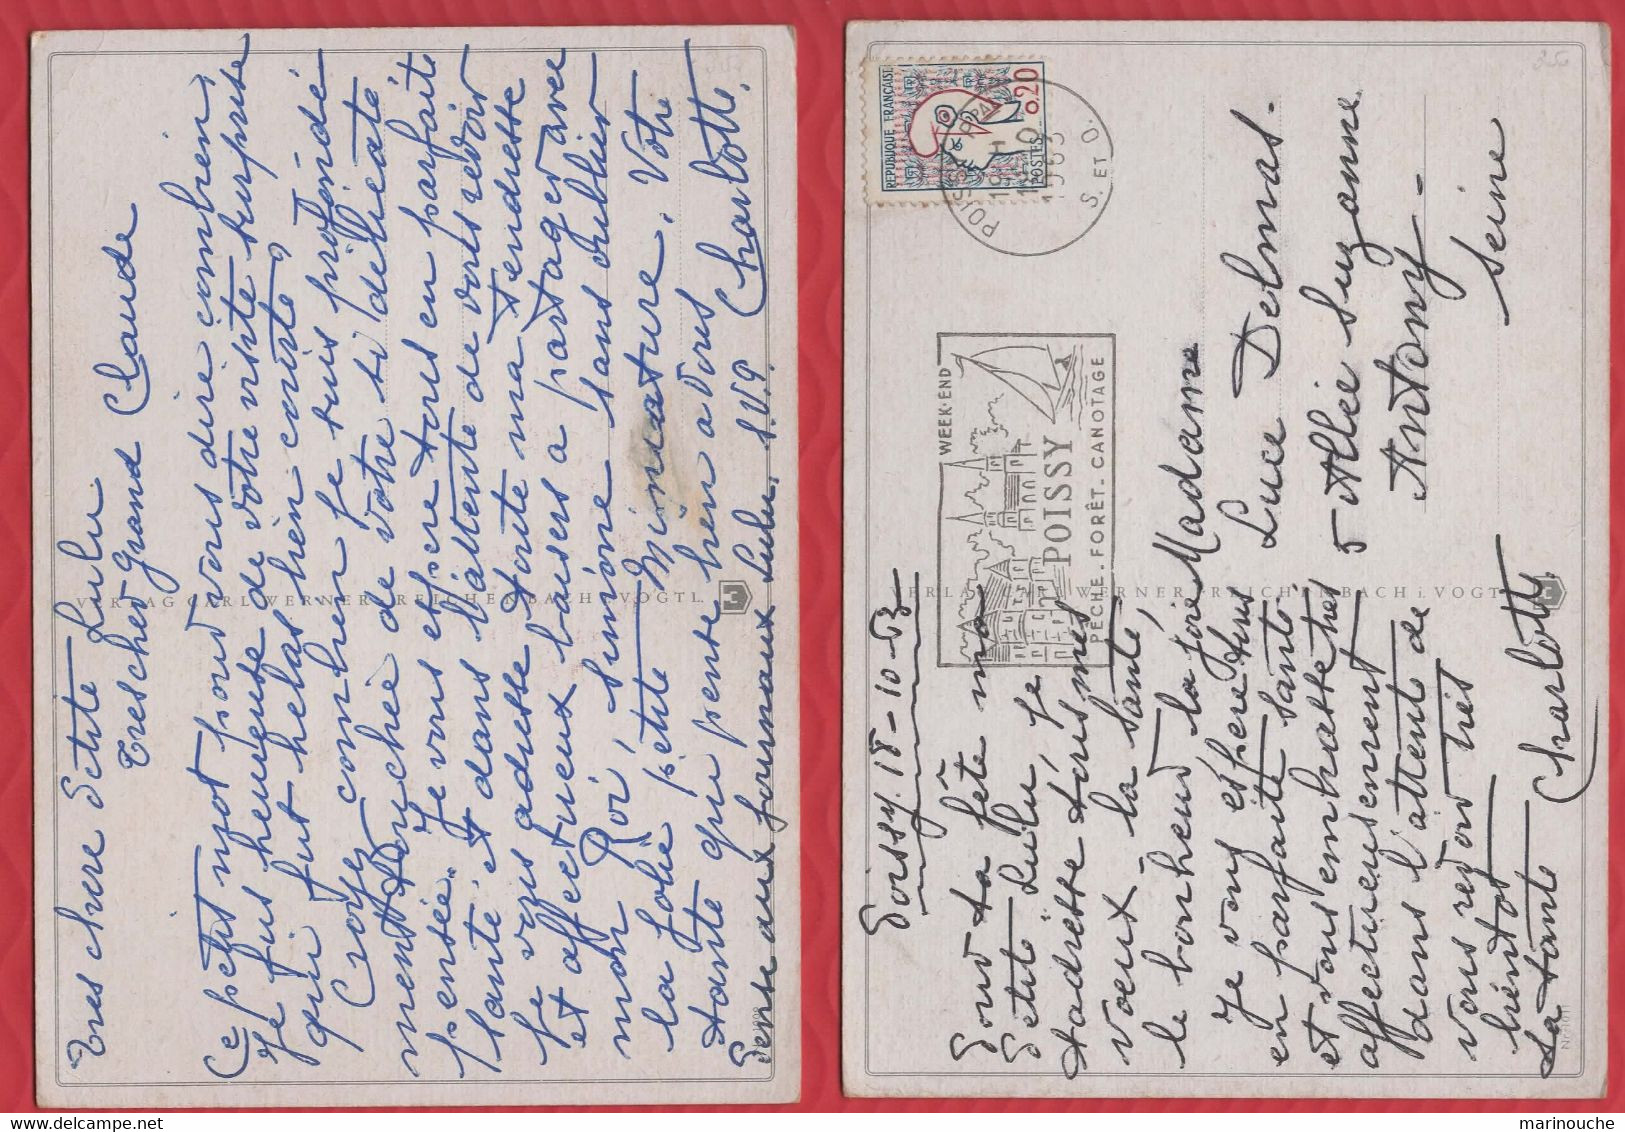 Tres chere Petite Lulu
Tres cher Grand Claude
Ce petit mot pour vous dire combien,
je fus heureuse de votre visite surprise
qui fut helas bien courte,
Croyez combien je suis profondé
ment touchée de votre si délicate
pensée. Je vous espere tous en parfaite
santé et dans l'attente de vous revoir
je vous adresse toute ma tendresse
et affectueux baisers a partager avec
mon Roi, Simone sans oublier
la jolie petite Minicature. Votre
tante qui pense bien a vous
Charlotte.
Pense aux journaux Lulu, S.V.P.
VERLAG CARL WERNER REICHENBACH i. VOGTL.
Poissy. 18-10-63
Pour ta fête ma
Petite Lulu, je
t'adresse tous mes
voeux, la santé,
le bonheur, la joie,
Je vous espere tous
en parfaite santé
et vous embrasse tres
affectueusement
dans l'attente de
vous revoir très
bientot
La tante Charlotte.
WEEK-END
POISSY
PÊCHE. FORÊT. CANOTAGE
REPUBLIQUE FRANÇAISE
0.20
POSTES
POISSY
19 H
18-10
1963
S. ET O.
Madame
Luce Delmas.
5 Allée Suzanne
Antony-
Seine
VERLAG CARL WERNER REICHENBACH i. VOGTL.
marinouche